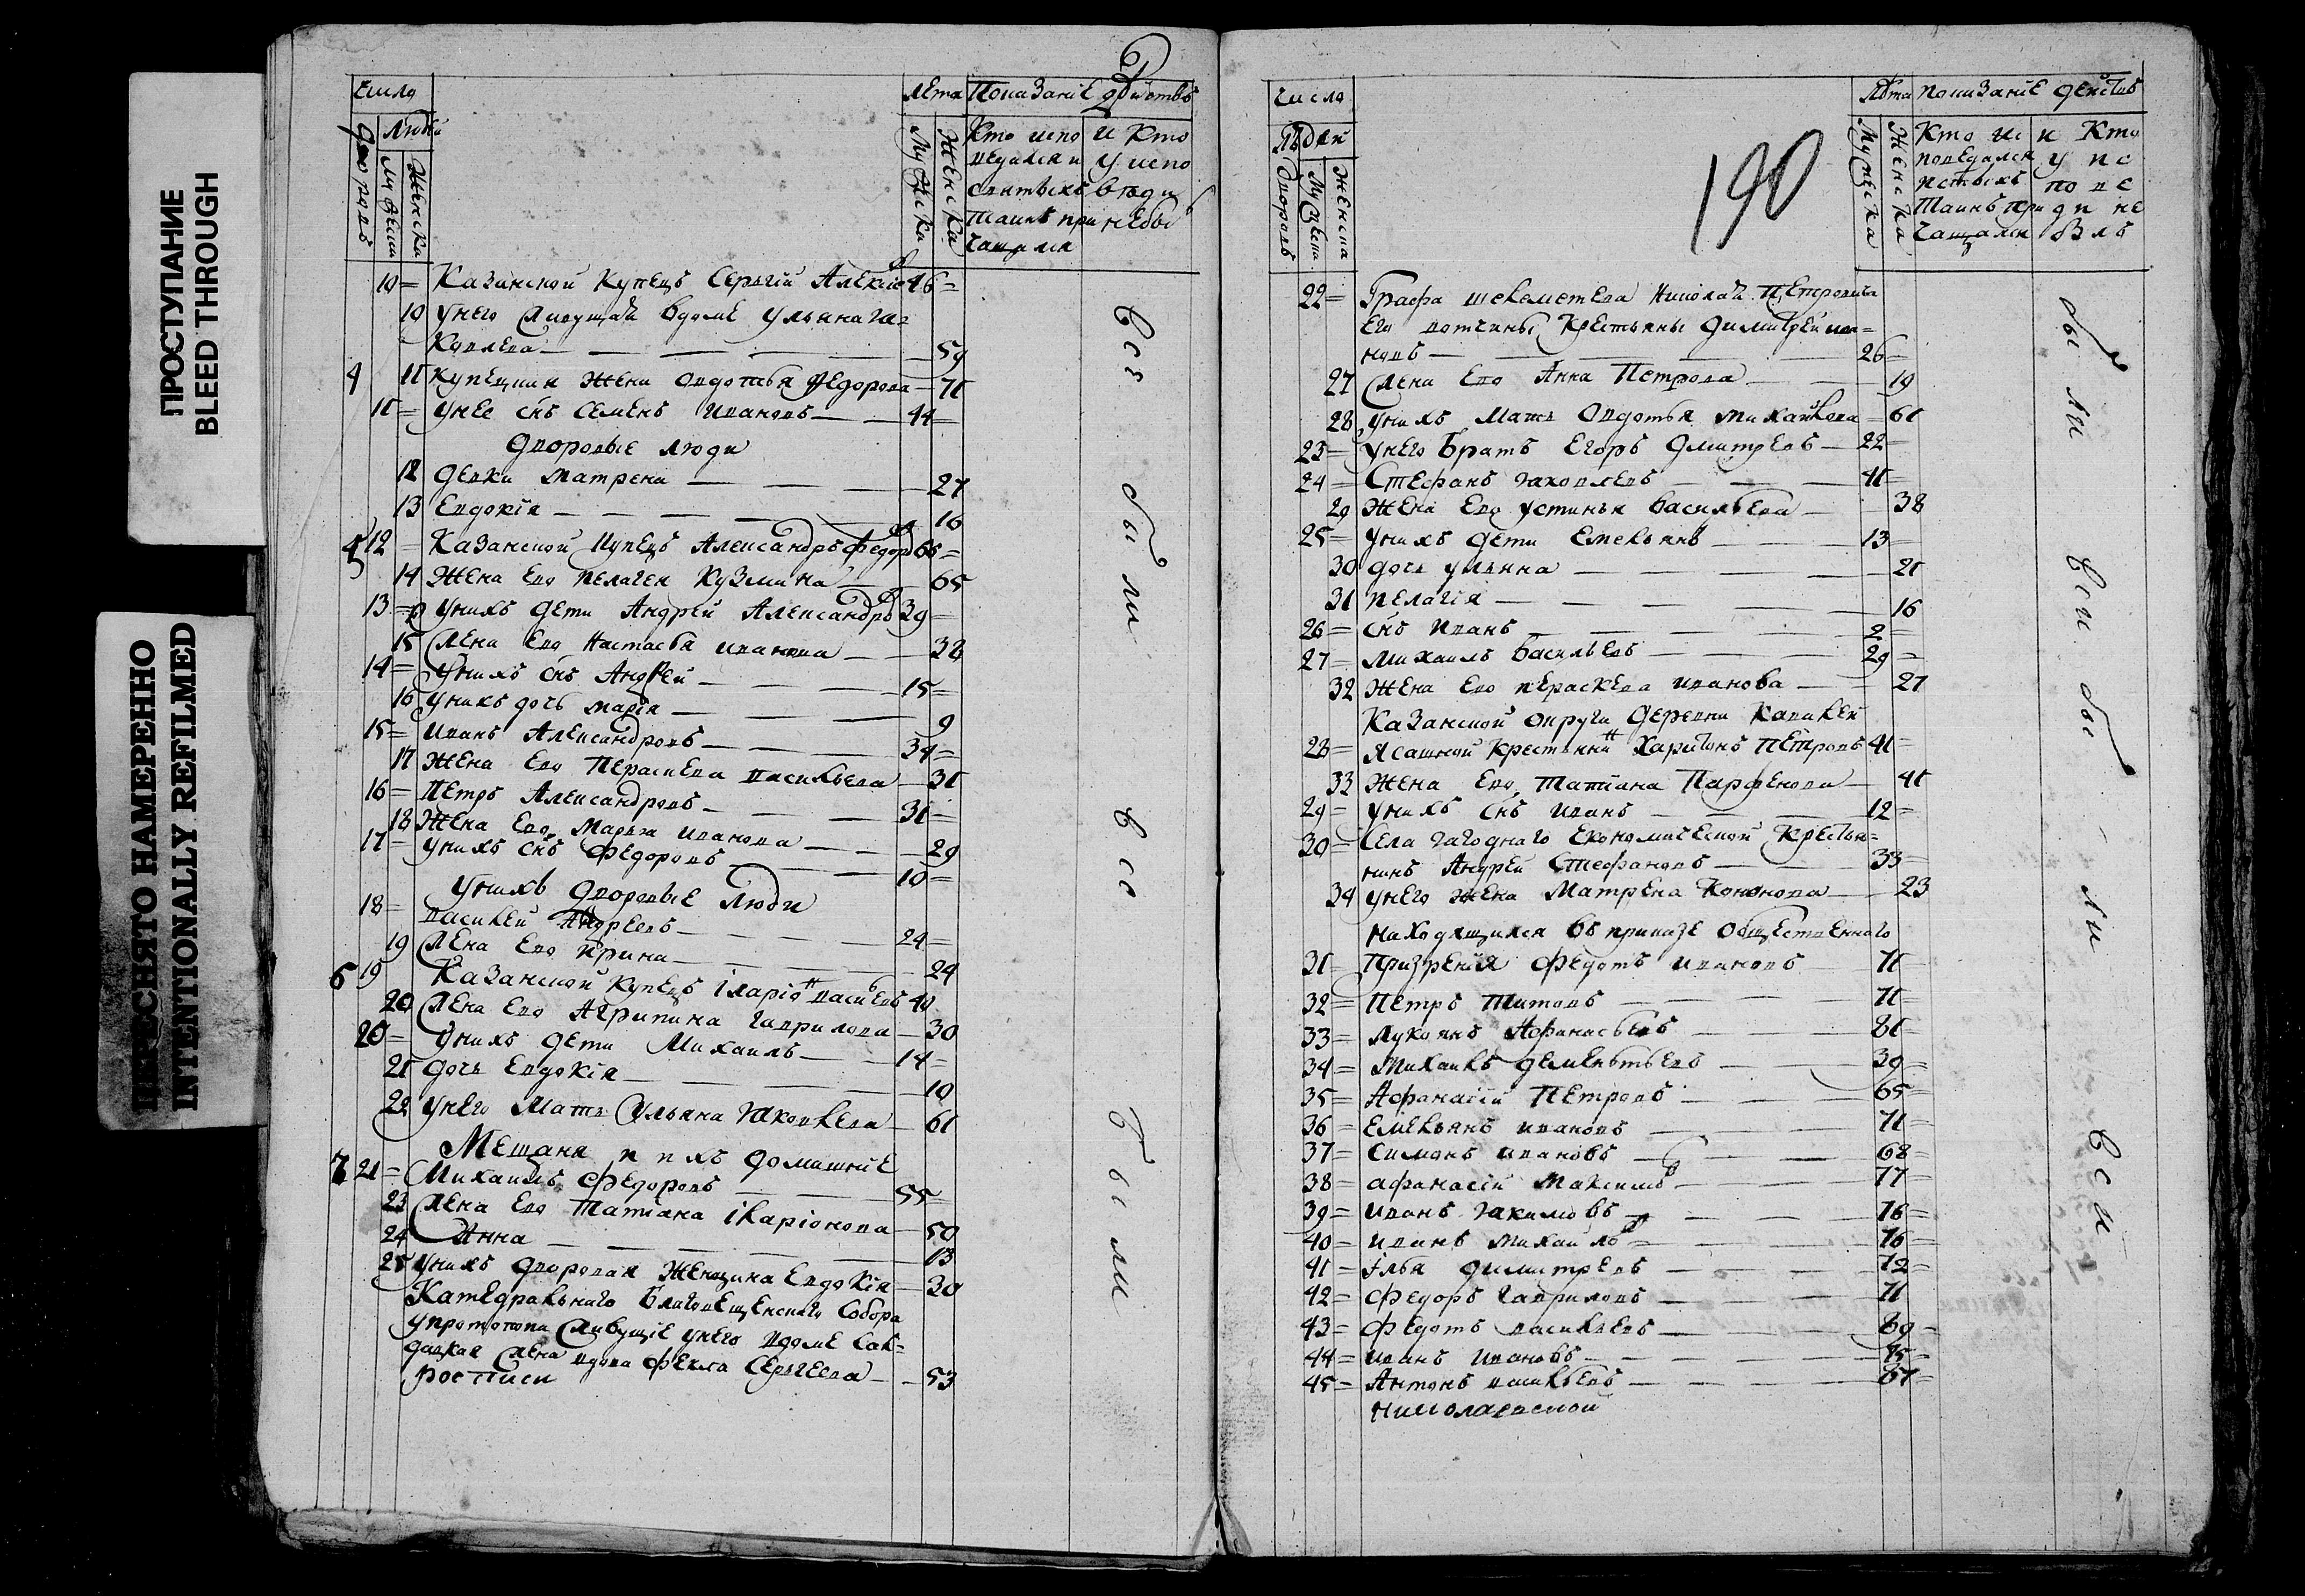 ПРОСТУПАНИЕ
BLEED THROUGH
ПЕРЕСНЯТО НАМЕРЕННО
INTENTIONALLY REFILMED
Число
Людей
Дворовъ
Мужеска
Женска
Лета
Мужеска
Женска
Показаніе действъ
Кто испо и кто
ведался и у испо
святыхъ веди
таинъ при не бы
чащался
10 = Казанской Купецъ Сергій Алексіевъ 46 =
10 У него живущая в доме Ульяна Яковлева — 59
4 11 Купецкая жена Овдотья Федорова — 71
11 = У нее снъ Семенъ Ивановъ — 44 =
Дворовые люди
12 Девки Матрена — 27
13 Евдокія — 16
5 12 = Казанской Купецъ Александръ Федоровъ 66 =
14 Жена Его Пелагея Кузмина — 65
13 = У нихъ дети Андрей Александровъ 39 =
15 Жена Его Настасья Иванова — 38
14 = У нихъ снъ Андрей — 15 =
16 У нихъ дочь Марія — 9
15 = Иванъ Александровъ — 34 =
17 Жена Его Пераскева Васильева — 31
16 = Петръ Александровъ — 31 =
18 Жена Его Марья Иванова — 29
17 = У нихъ снъ Федоровъ — 10 =
У нихъ Дворовые Люди
18 = Василей Андреевъ — 24 =
19 Жена Его Ирина — 24
6 19 Казанской Купецъ Іларіонъ Васильевъ 40
20 Жена Его Агрипина Гаврилова — 30
20 = У нихъ дети Михаилъ — 14 =
21 Дочь Евдокія — 10
22 У него Мать Ульяна Яковлева — 61
Мещаня и ихъ домашніе
7 21 = Михаилъ Федоровъ — 55
23 Жена Его Татіана Іларіонова — 50
24 Анна — 13
25 У нихъ дворовая Женщина Евдокія — 30
Катедральнаго Благовещенскаго Собора
У протопопа Живущіе у него в доме Сол-
дацкая Жена вдова Фекла Сергеева — 53
росписи
Все были
все были
190
Число
Людей
Дворовъ
Мужеска
Женска
Лета
Мужеска
Женска
Показаніе действъ
Кто ис и Кто
поведался у ис
и стыхъ пове
Таинъ при ди не
чащался былъ
22 = Графа Шереметева Николая Петровича
Его вотчины Крестьяны Димитрей Ива=
новъ — 26 =
27 Жена Его Анна Петрова — 19
28 У нихъ Мать Овдотья Михайлова — 61
23 = У него Братъ Егоръ Дмитревъ — 22 =
24 = Стефанъ Яковлевъ — 41 =
29 Жена Его Устинья Васильева — 38
25 = У нихъ дети Емельянъ — 13 =
30 дочь Ульяна — 21
31 Пелагія — 16
26 = снъ Иванъ — 2 =
27 = Михаилъ Васильевъ — 29 =
32 Жена Его Пераскева Иванова — 27
Казанской округи Деревни
28 = Ясашной Крестьянинъ Харитонъ Петровъ 41 =
33 Жена Его Татіана Парфенова — 41
29 = У нихъ снъ Иванъ — 12 =
30 = Села Ягоднаго Економической Крестья=
нинъ Андрей Стефановъ — 33 =
34 У него Жена Матрена Кононова — 23
Находящихся въ приказе Общественнаго
31 = Призренія Федотъ Ивановъ 71 =
32 = Петръ Титовъ — 71 =
33 = Лукоянъ Афанасьевъ — 81 =
34 = Михаилъ Дементьевъ — 39 =
35 = Афанасій Петровъ — 65 =
36 = Емельянъ Ивановъ — 71 =
37 = Симонъ Ивановъ — 68 =
38 = Афанасій Максимовъ — 77 =
39 = Иванъ Якимовъ — 76 =
40 = Иванъ Михайловъ — 76 =
41 = Ілья Димитревъ — 72 =
42 = Федоръ Гавриловъ — 71 =
43 = Федотъ Васильевъ — 69 =
44 = Иванъ Ивановъ — 75 =
45 = Антонъ Васильевъ — 67 =
Николаевской
были
вси были
вси